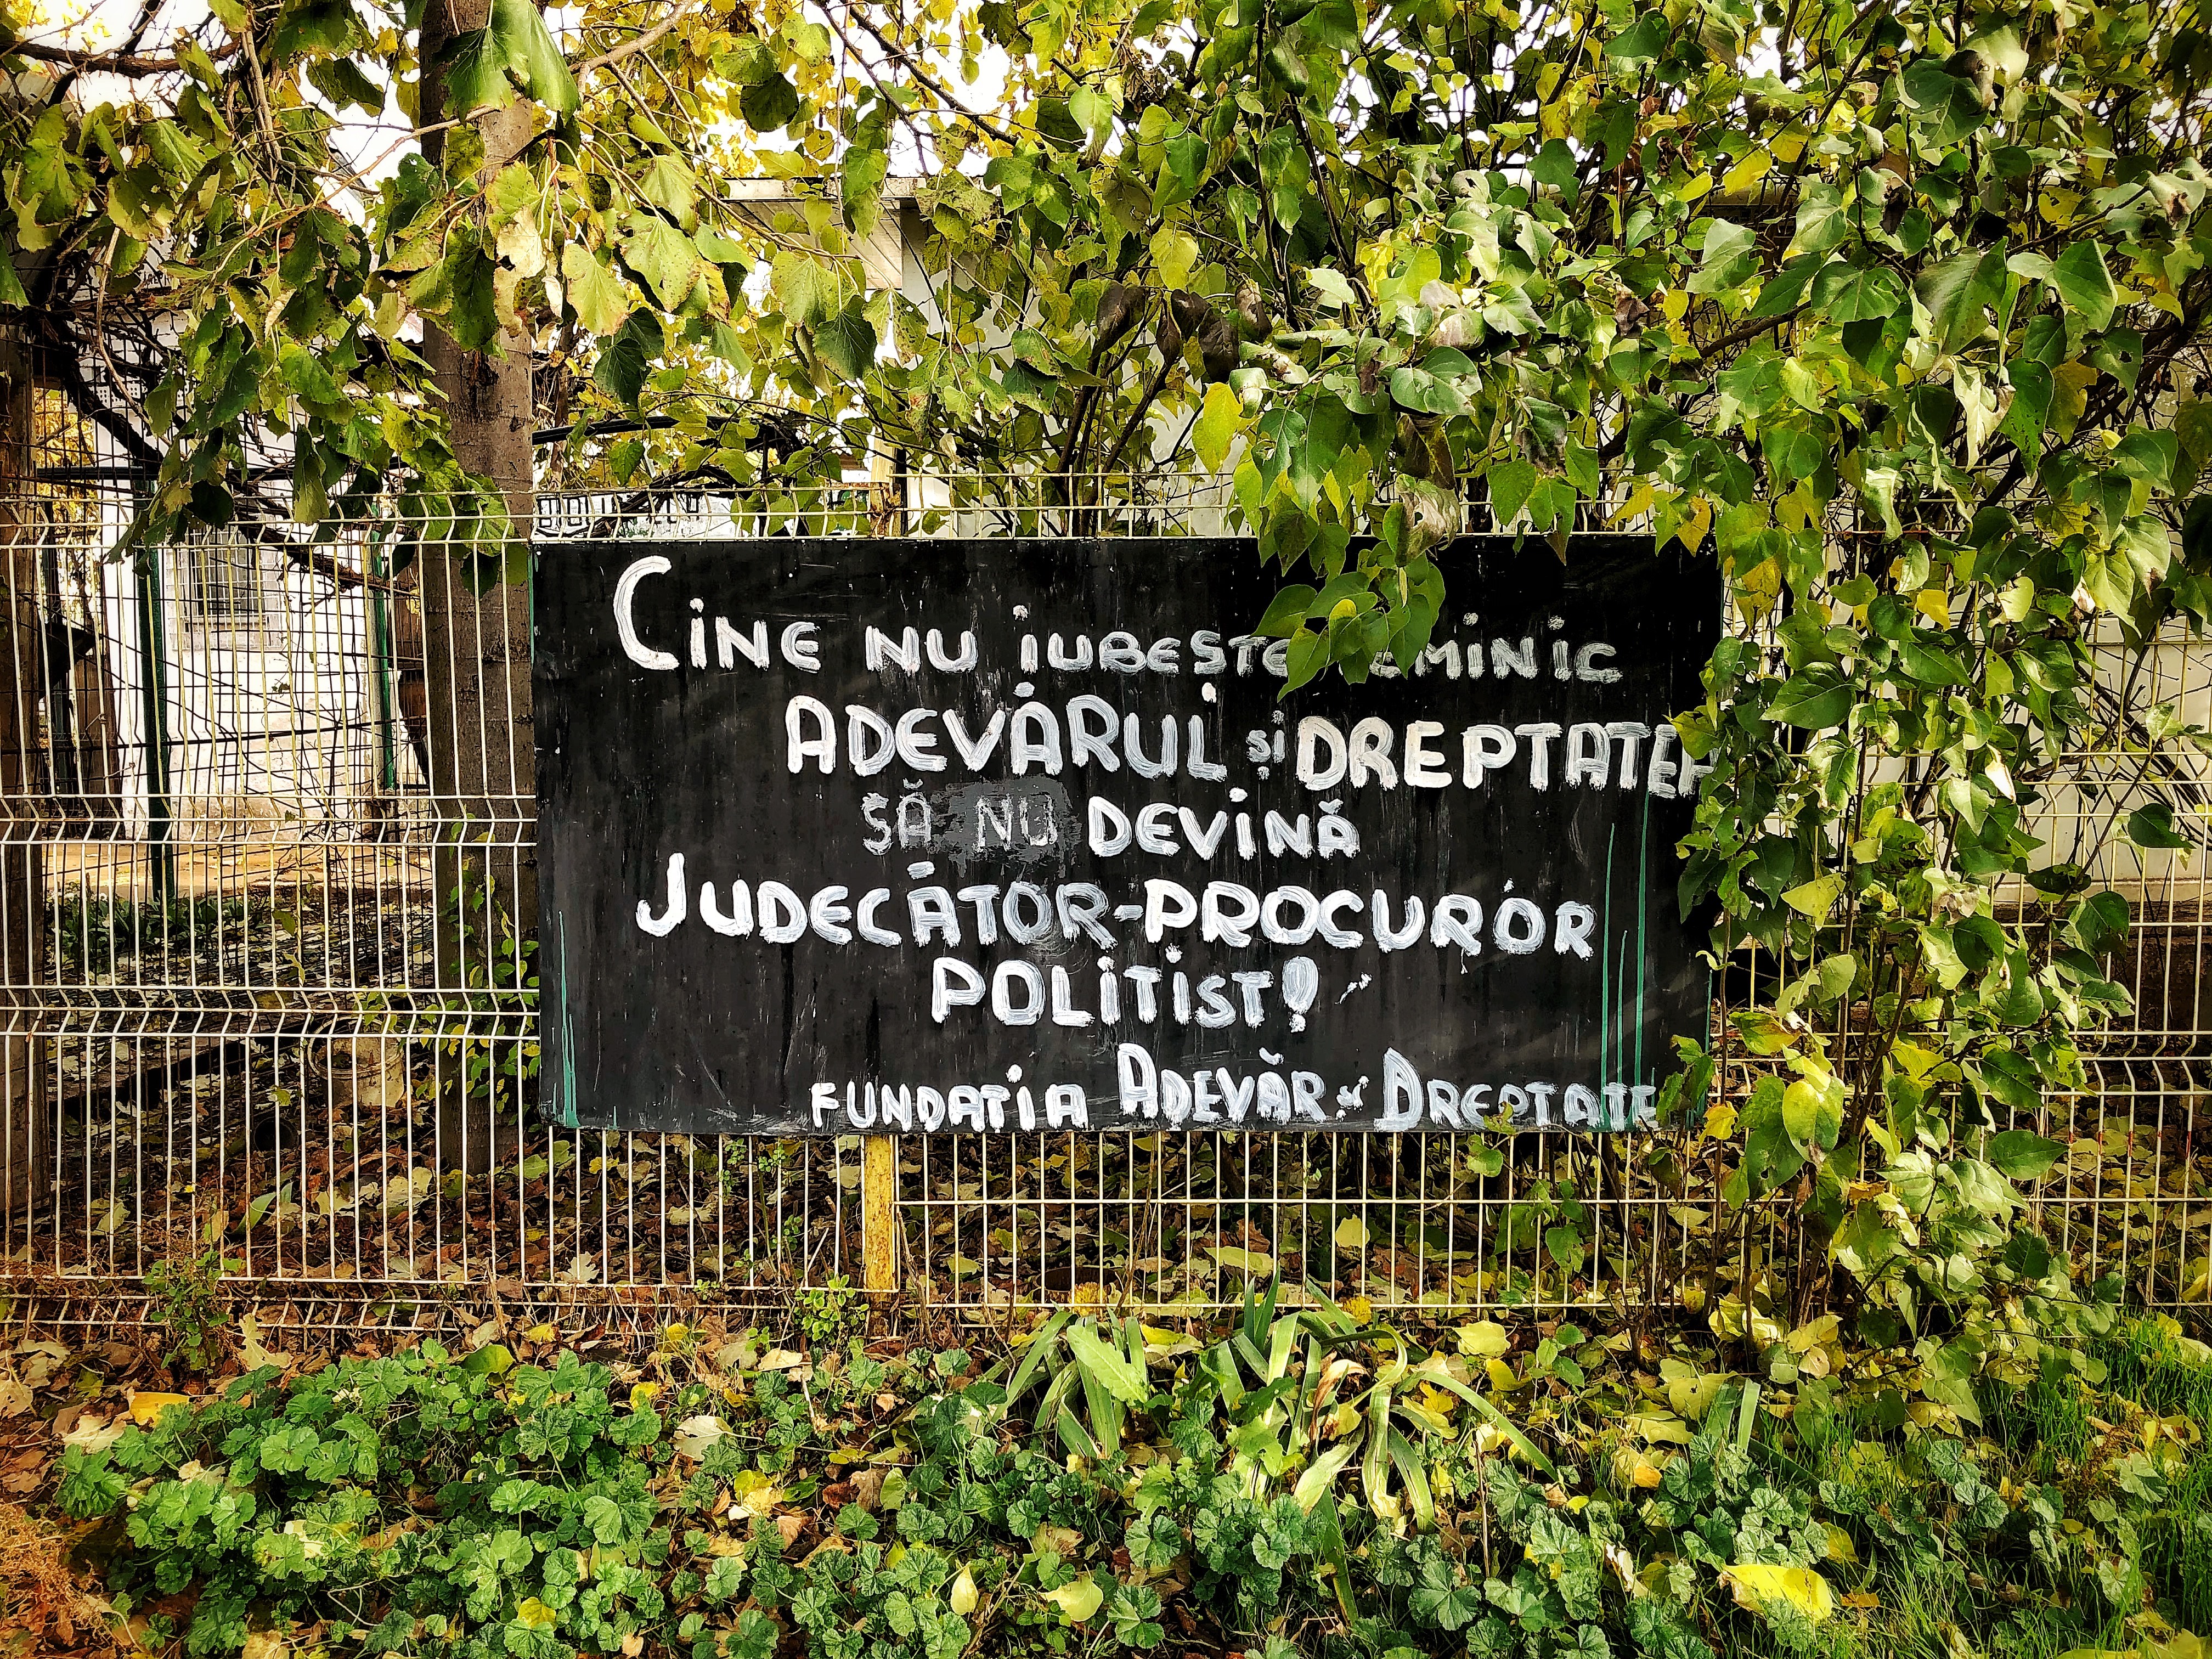 CINE NU IUBESTE
ADEVĂRUL ȘI DREPTATEA
SĂ NU DEVINĂ
JUDECĂTOR-PROCUROR
POLITIST!
FUNDATIA ADEVĂR ȘI DREPTATE